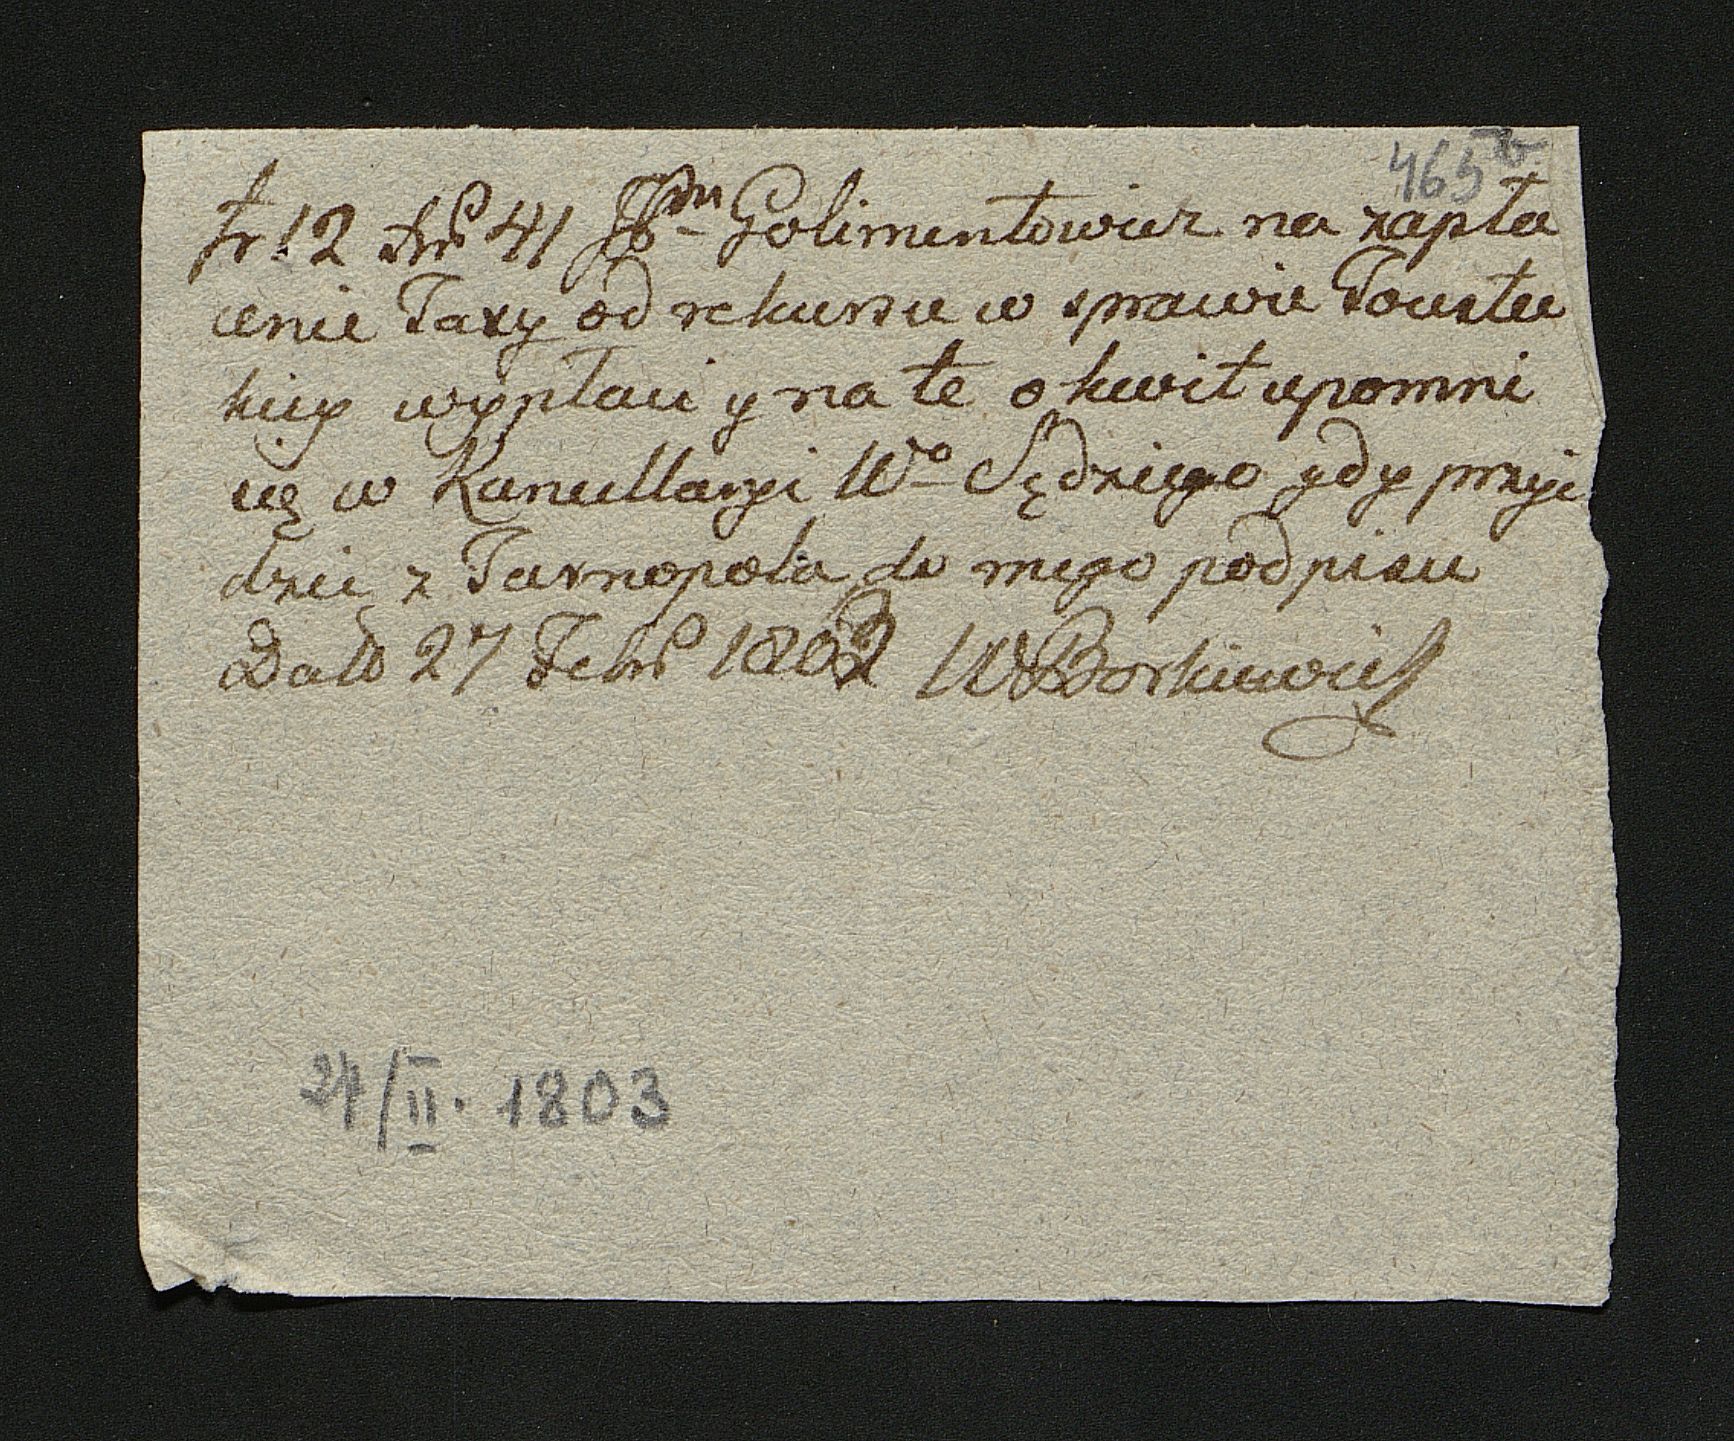 465 b
fr: 12 xr 41 JPan Golimentowicz na zapła
cenie Taxy od rekursu w sprawie Toustu
kiey wypłaci y na te o kwit upomni
się w Kancellaryi Wo Sędziego gdy przyi
dzie z Tarnopola do mego podpisu
Dało 27 Febr 1803 WBorkiewicz
27/II. 1803